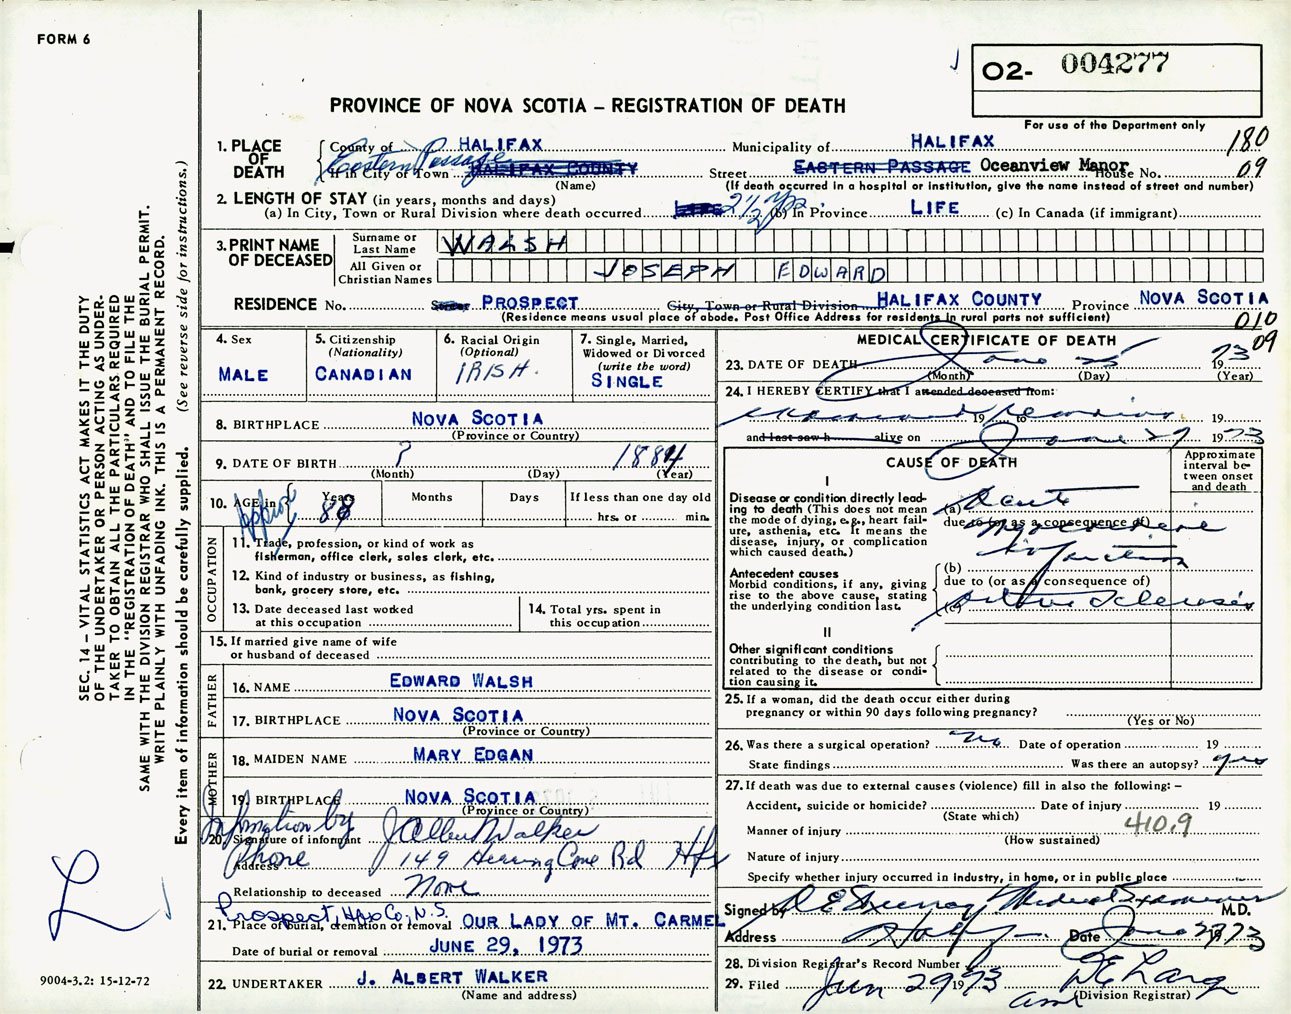 FORM 6
O2- 004277
PROVINCE OF NOVA SCOTIA – REGISTRATION OF DEATH
For use of the Department only
180
09
1. PLACE OF DEATH
County of HALIFAX Municipality of HALIFAX
If in City or Town Eastern Passage HALIFAX COUNTY Street EASTERN PASSAGE Oceanview Manor House No.
(Name) (If death occurred in a hospital or institution, give the name instead of street and number)
2. LENGTH OF STAY (in years, months and days)
(a) In City, Town or Rural Division where death occurred LIFE 2 1/2 yrs (b) In Province LIFE (c) In Canada (if immigrant)
3. PRINT NAME OF DECEASED
Surname or Last Name WALSH
All Given or Christian Names JOSEPH EDWARD
RESIDENCE No. Street PROSPECT City, Town or Rural Division HALIFAX COUNTY Province NOVA SCOTIA
(Residence means usual place of abode. Post Office Address for residents in rural parts not sufficient)
010
09
4. Sex
MALE
5. Citizenship
(Nationality)
CANADIAN
6. Racial Origin
(Optional)
IRISH.
7. Single, Married,
Widowed or Divorced
(write the word)
SINGLE
8. BIRTHPLACE NOVA SCOTIA
(Province or Country)
9. DATE OF BIRTH ? 1884
(Month) (Day) (Year)
10. AGE in Approx Years 88 Months Days If less than one day old
hrs. or min.
OCCUPATION
11. Trade, profession, or kind of work as
fisherman, office clerk, sales clerk, etc.
12. Kind of industry or business, as fishing,
bank, grocery store, etc.
13. Date deceased last worked
at this occupation
14. Total yrs. spent in
this occupation
15. If married give name of wife
or husband of deceased
FATHER
16. NAME EDWARD WALSH
17. BIRTHPLACE NOVA SCOTIA
(Province or Country)
MOTHER
18. MAIDEN NAME MARY EDGAN
19. BIRTHPLACE NOVA SCOTIA
(Province or Country)
Information by
20. Signature of informant J Albert Walker
Phone
Address 149 Herring Cove Rd Hfx
Relationship to deceased None
Prospect, Hfx Co, N.S.
21. Place of burial, cremation or removal OUR LADY OF MT. CARMEL
Date of burial or removal JUNE 29, 1973
22. UNDERTAKER J. ALBERT WALKER
(Name and address)
MEDICAL CERTIFICATE OF DEATH
23. DATE OF DEATH June 25 1973
(Month) (Day) (Year)
24. I HEREBY CERTIFY that I attended deceased from:
examined remains 19 to 19
and last saw h alive on June 27 1973
CAUSE OF DEATH
Approximate
interval be-
tween onset
and death
I
Disease or condition directly lead-
ing to death (This does not mean
the mode of dying, e.g., heart fail-
ure, asthenia, etc. It means the
disease, injury, or complication
which caused death.)
(a) Acute
due to (or as a consequence of)
myocardial
infarction
Antecedent causes
Morbid conditions, if any, giving
rise to the above cause, stating
the underlying condition last.
(b)
due to (or as a consequence of)
(c) arteriosclerosis
II
Other significant conditions
contributing to the death, but not
related to the disease or condi-
tion causing it.
25. If a woman, did the death occur either during
pregnancy or within 90 days following pregnancy?
(Yes or No)
26. Was there a surgical operation? no Date of operation 19
State findings Was there an autopsy? yes
27. If death was due to external causes (violence) fill in also the following: –
Accident, suicide or homicide? Date of injury 19
(State which)
Manner of injury 410.9
(How sustained)
Nature of injury
Specify whether injury occurred in Industry, in home, or in public place
Signed by Medical Examiner M.D.
Address Halifax Date June 27 1973
28. Division Registrar's Record Number
29. Filed Jun 29 1973
(Division Registrar)
SEC. 14 – VITAL STATISTICS ACT MAKES IT THE DUTY
OF THE UNDERTAKER OR PERSON ACTING AS UNDER-
TAKER TO OBTAIN ALL THE PARTICULARS REQUIRED
IN THE "REGISTRATION OF DEATH" AND TO FILE THE
SAME WITH THE DIVISION REGISTRAR WHO SHALL ISSUE THE BURIAL PERMIT.
WRITE PLAINLY WITH UNFADING INK. THIS IS A PERMANENT RECORD.
Every item of information should be carefully supplied. (See reverse side for instructions.)
9004-3.2: 15-12-72